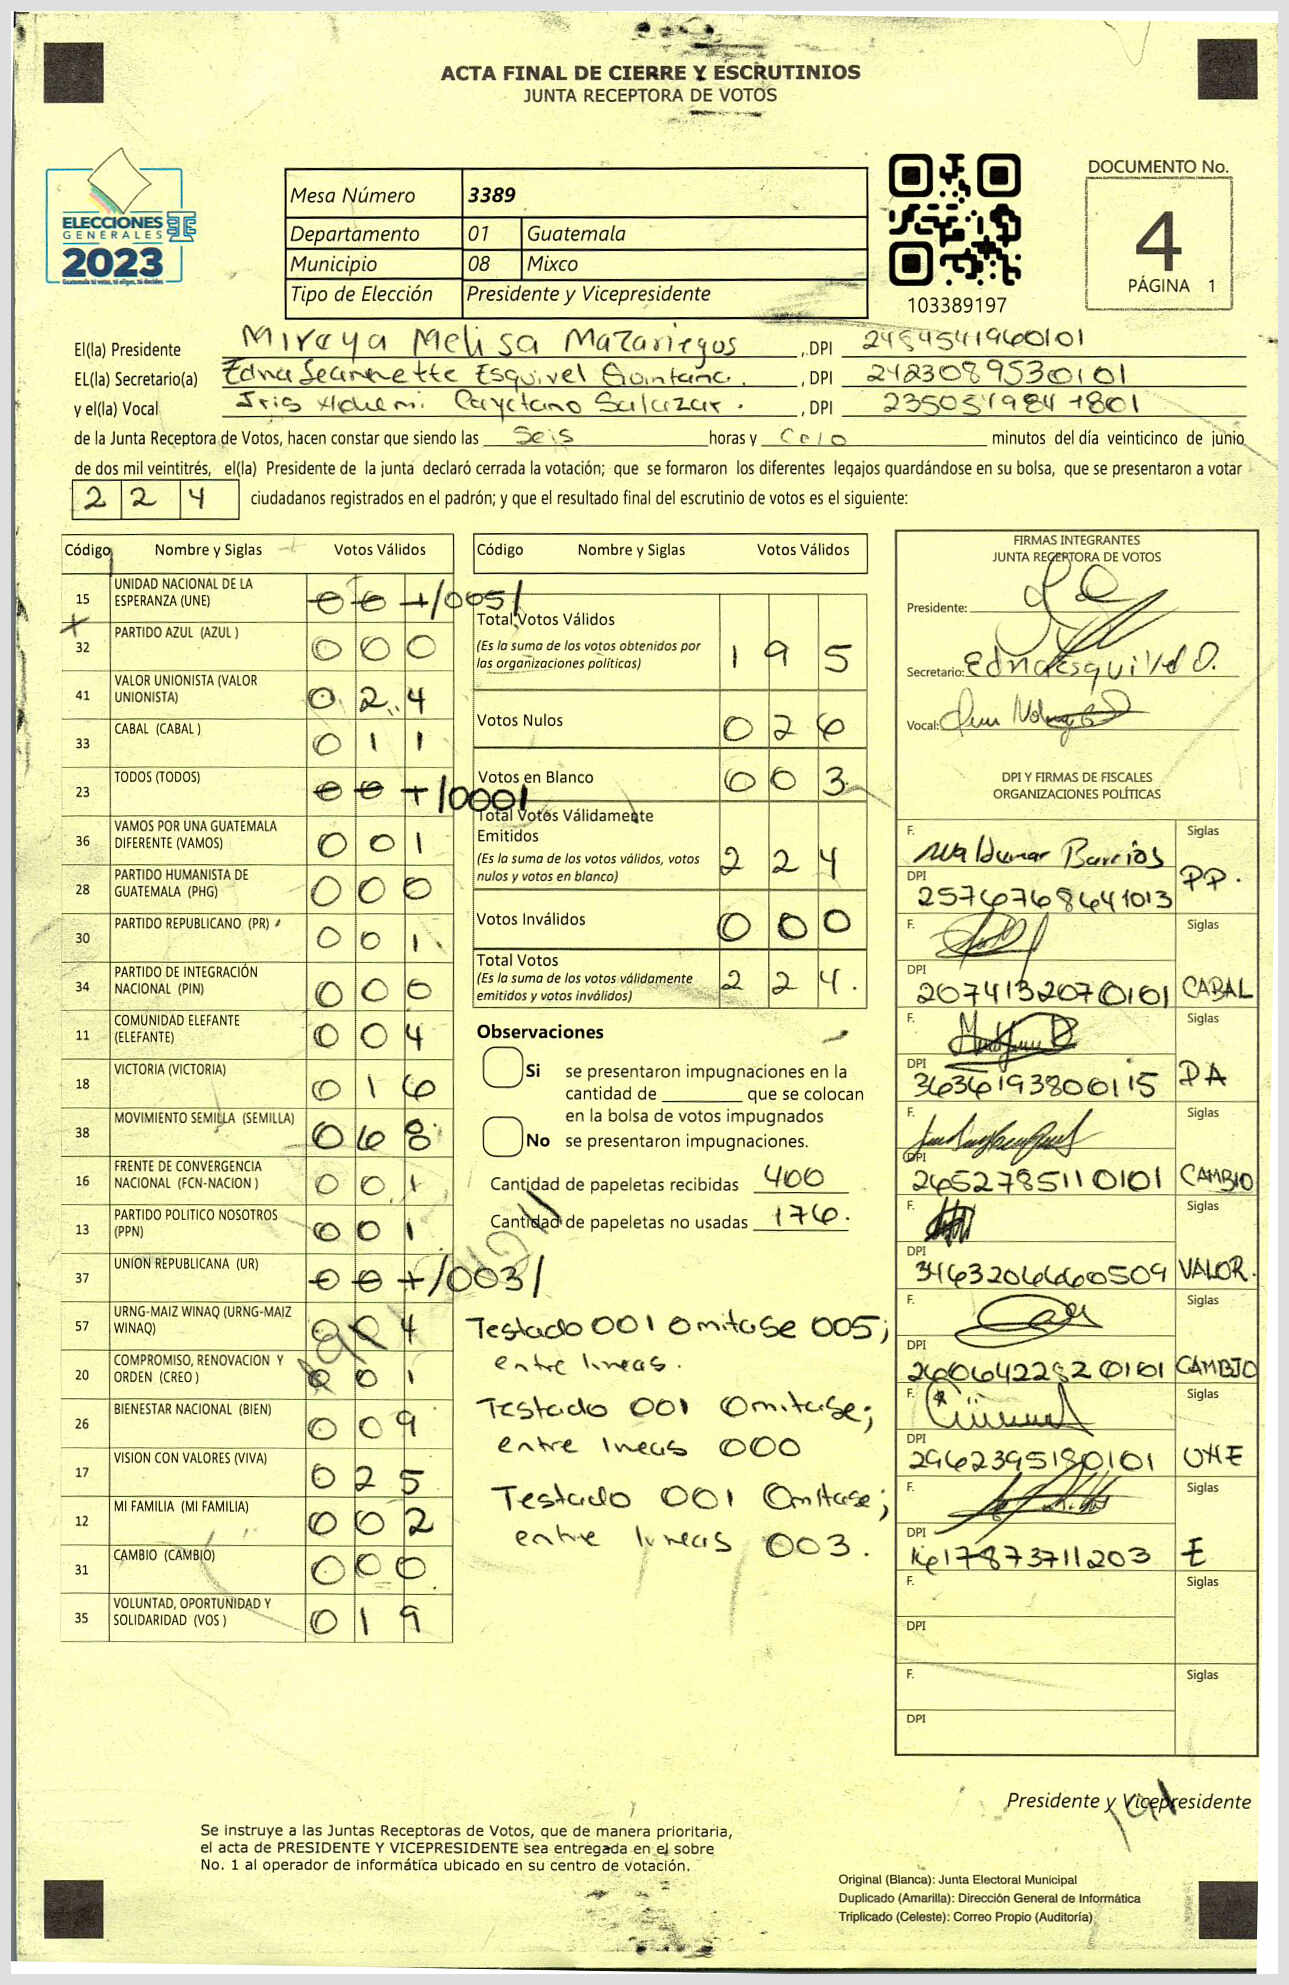 ACTA FINAL DE CIERRE Y ESCRUTINIOS
JUNTA RECEPTORA DE VOTOS
ELECCIONES
GENERALES
2023
Guatemala tú votas, tú eliges, tú decides
Mesa Número 3389
Departamento 01 Guatemala
Municipio 08 Mixco
Tipo de Elección Presidente y Vicepresidente
103389197
DOCUMENTO No.
4
PÁGINA 1
El(la) Presidente Mireya Melisa Mazariegos , DPI 2484541960101
EL(la) Secretario(a) Edna Jeannette Esquivel Quintana. , DPI 2423089530101
y el(la) Vocal Iris Cayetano Salazar. , DPI
de la Junta Receptora de Votos, hacen constar que siendo las Seis horas y Cero minutos del día veinticinco de junio
de dos mil veintitrés, el(la) Presidente de la junta declaró cerrada la votación; que se formaron los diferentes legajos guardándose en su bolsa, que se presentaron a votar
224 ciudadanos registrados en el padrón; y que el resultado final del escrutinio de votos es el siguiente:
Código Nombre y Siglas Votos Válidos
15 UNIDAD NACIONAL DE LA ESPERANZA (UNE) 001 /005/
32 PARTIDO AZUL (AZUL ) 000
41 VALOR UNIONISTA (VALOR UNIONISTA) 024
33 CABAL (CABAL ) 011
23 TODOS (TODOS) 001 /000/
36 VAMOS POR UNA GUATEMALA DIFERENTE (VAMOS) 001
28 PARTIDO HUMANISTA DE GUATEMALA (PHG) 000
30 PARTIDO REPUBLICANO (PR) 001
34 PARTIDO DE INTEGRACIÓN NACIONAL (PIN) 000
11 COMUNIDAD ELEFANTE (ELEFANTE) 004
18 VICTORIA (VICTORIA) 016
38 MOVIMIENTO SEMILLA (SEMILLA) 068
16 FRENTE DE CONVERGENCIA NACIONAL (FCN-NACION ) 001
13 PARTIDO POLITICO NOSOTROS (PPN) 001
37 UNION REPUBLICANA (UR) 001 /003/
57 URNG-MAIZ WINAQ (URNG-MAIZ WINAQ) 004
20 COMPROMISO, RENOVACION Y ORDEN (CREO ) 001
26 BIENESTAR NACIONAL (BIEN) 009
17 VISION CON VALORES (VIVA) 025
12 MI FAMILIA (MI FAMILIA) 002
31 CAMBIO (CAMBIO) 000
35 VOLUNTAD, OPORTUNIDAD Y SOLIDARIDAD (VOS ) 019
Código Nombre y Siglas Votos Válidos
Total Votos Válidos
(Es la suma de los votos obtenidos por las organizaciones políticas) 195
Votos Nulos 026
Votos en Blanco 003
Total Votos Válidamente Emitidos
(Es la suma de los votos válidos, votos nulos y votos en blanco) 224
Votos Inválidos 000
Total Votos
(Es la suma de los votos válidamente emitidos y votos inválidos) 224.
Observaciones
Si se presentaron impugnaciones en la
cantidad de ________ que se colocan
en la bolsa de votos impugnados
No se presentaron impugnaciones.
Cantidad de papeletas recibidas 400
Cantidad de papeletas no usadas 176.
Testado 001 Omitase 005;
entre lineas.
Testado 001 Omitase;
entre lineas 000
Testado 001 Omitase;
entre lineas 003.
FIRMAS INTEGRANTES
JUNTA RECEPTORA DE VOTOS
Presidente:
Secretario: Edna Esquivel Q.
Vocal:
DPI Y FIRMAS DE FISCALES
ORGANIZACIONES POLÍTICAS
F. Waldemar Barrios Siglas
DPI 2576768641013 PP.
F. Siglas
DPI 2074132070101 CABAL
F. Siglas
DPI 3636193800115 PA
F. Siglas
DPI 2652785110101 CAMBIO
F. Siglas
DPI 3463206660509 VALOR.
F. Siglas
DPI 2606422820101 CAMBIO
F. Siglas
DPI 2962395180101 UNE
F. Siglas
DPI 1617873711203 E
F. Siglas
DPI
F. Siglas
DPI
Presidente y Vicepresidente
Se instruye a las Juntas Receptoras de Votos, que de manera prioritaria,
el acta de PRESIDENTE Y VICEPRESIDENTE sea entregada en el sobre
No. 1 al operador de informática ubicado en su centro de votación.
Original (Blanca): Junta Electoral Municipal
Duplicado (Amarilla): Dirección General de Informática
Triplicado (Celeste): Correo Propio (Auditoría)